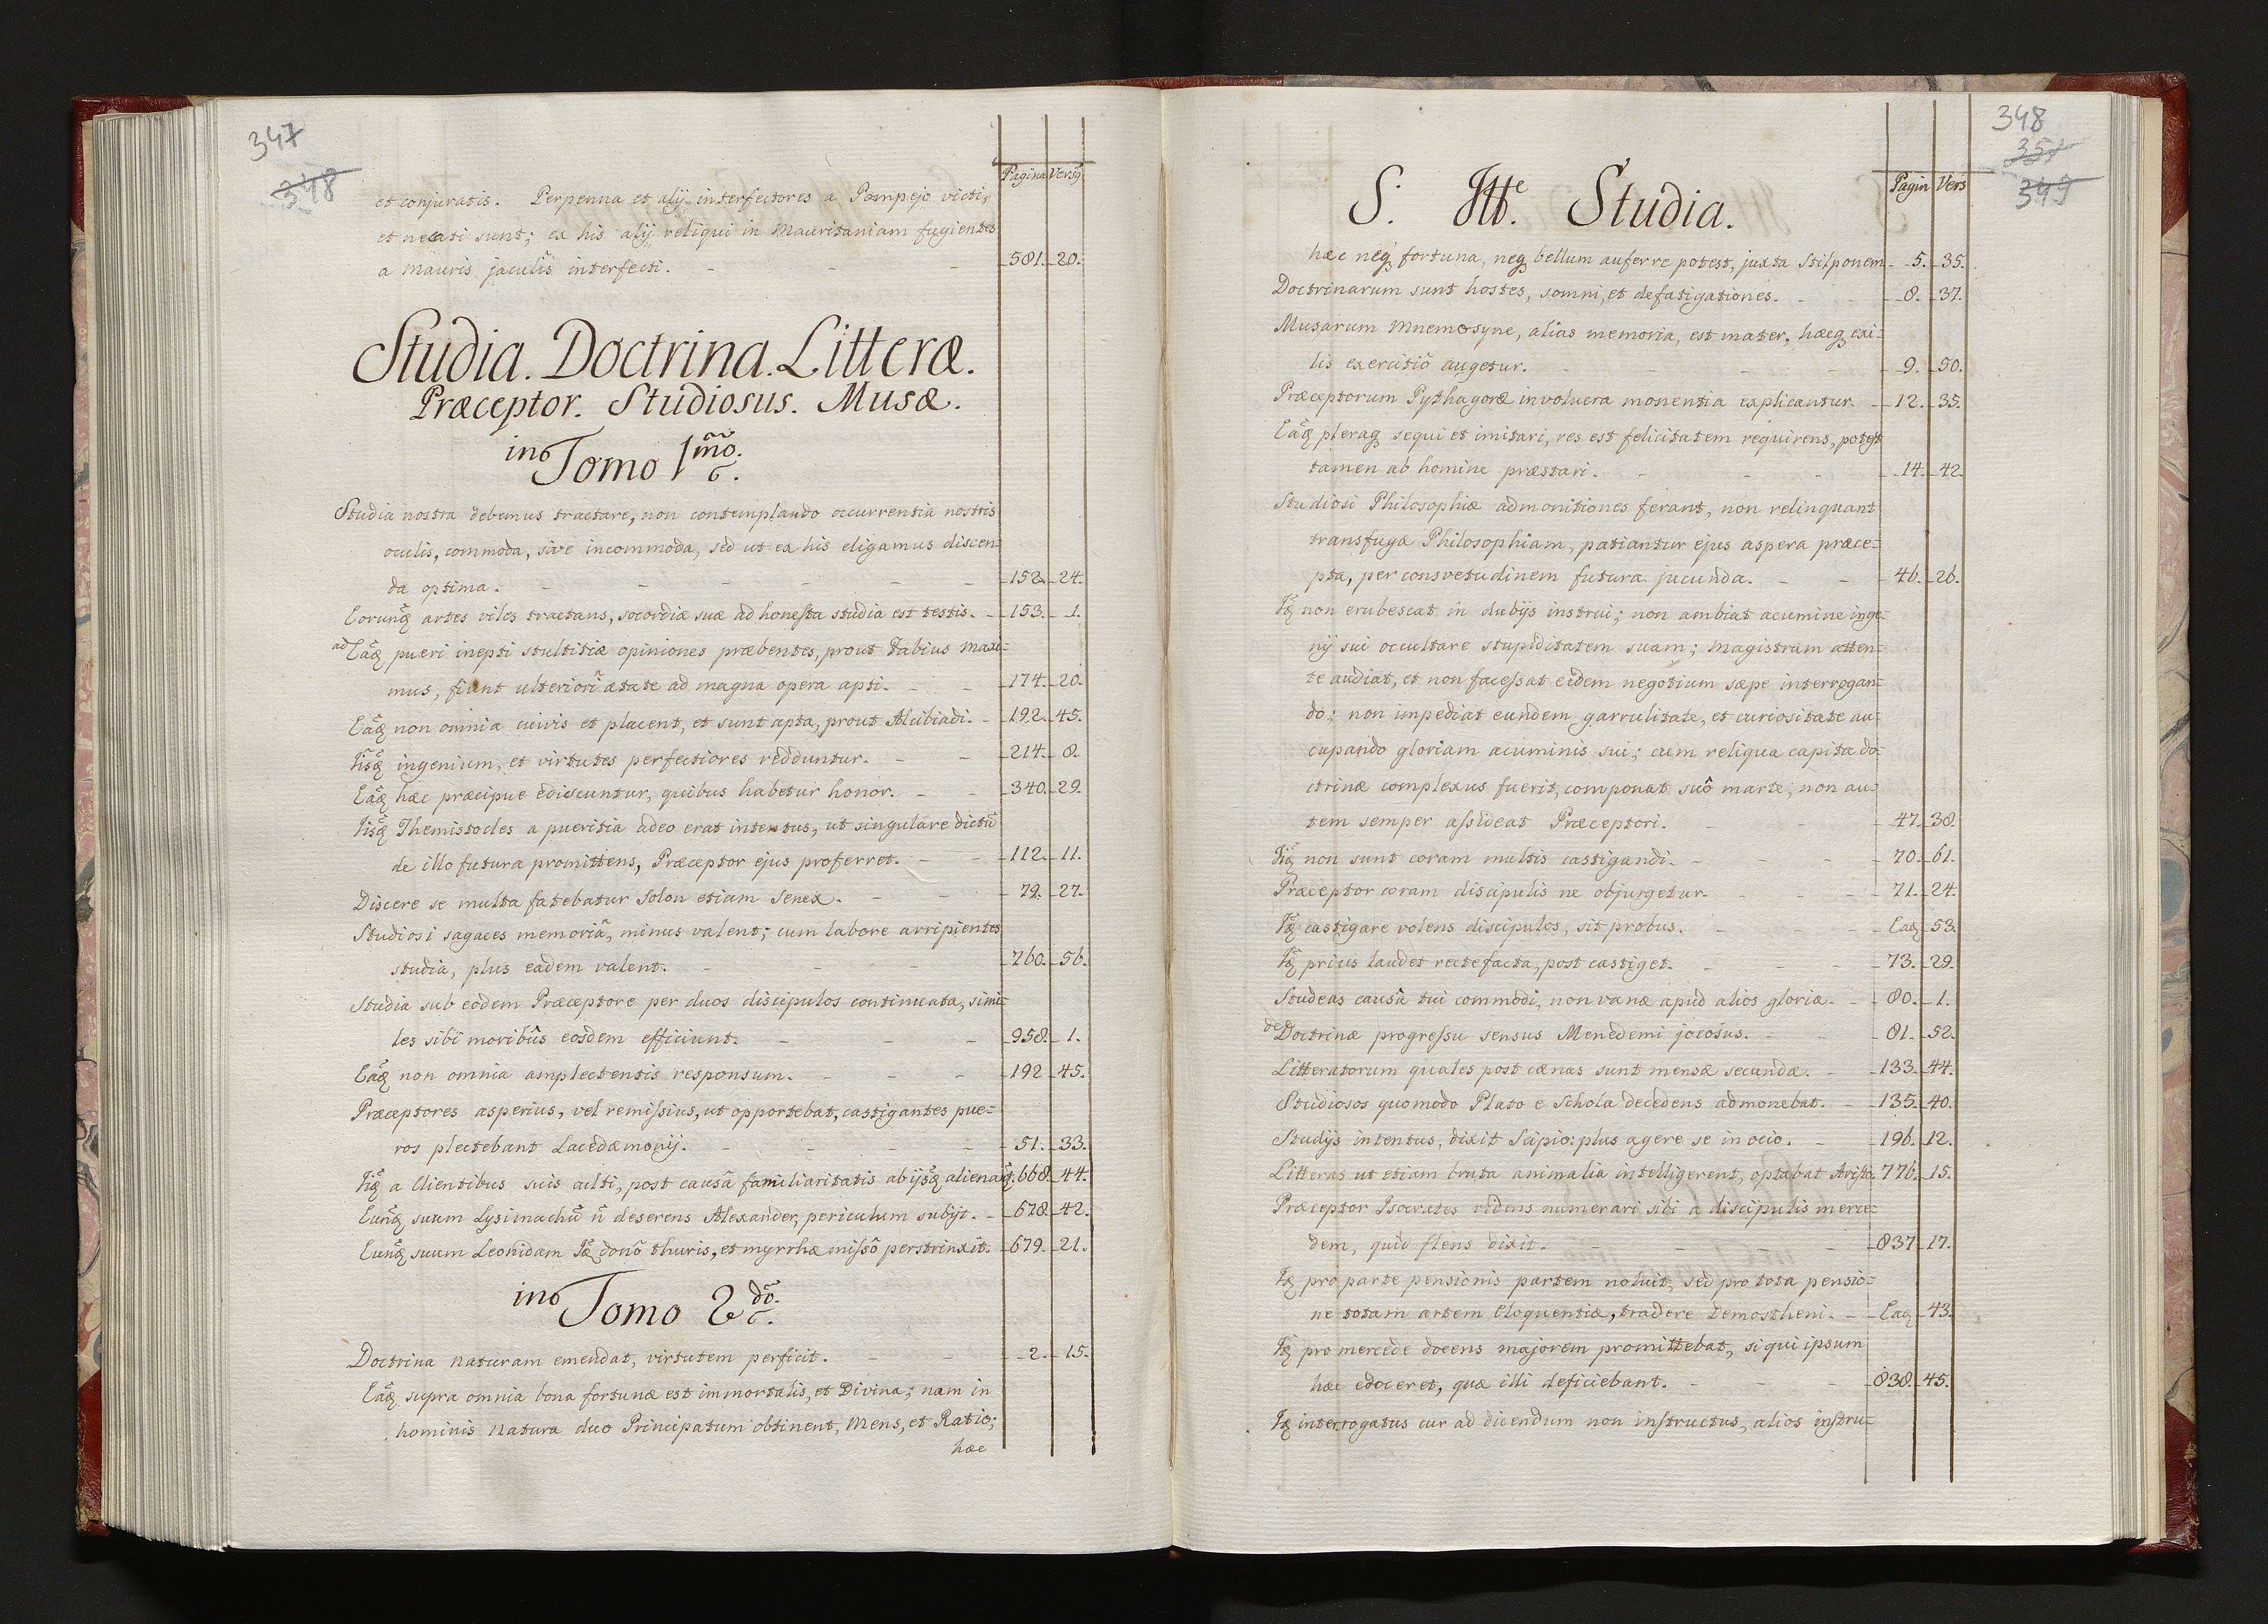 347
348
Pagina Versꝯ
et conjuratis. Perpenna et alij interfectores a Pompejo victi,
et necati sunt; ex his alij reliqui in Mauritaniam fugientes
a Mauris jaculis interfecti. 581. 20.
Studia. Doctrina. Litteræ.
Præceptor. Studiosus. Musæ.
in Tomo 1mo.
Studia nostra debemus tractare, non contemplando occurrentia nostris
oculis, commoda, sive incommoda, sed ut ex his eligamus discen=
da optima. 152. 24.
artes viles tractans, socordiæ suæ ad honesta studia est testis. 153. 1.
ad Eaq pueri inepti stultitiæ opiniones præbentes, prout Fabius Maxi=
mus, fiunt ulteriori ætate ad magna opera apti. 174. 20.
Eaq non omnia cuivis et placent, et sunt apta, prout Alcibiadi. 192. 45.
Iisq ingenium, et virtutes perfectiores redduntur. 214. 8.
Eaq hæc præcipue ediscuntur, quibus habetur honor. 340. 29.
Iisq Themistocles a pueritia adeo erat intentus, ut singulare dictu
de illo futura promittens, Præceptor ejus proferret. 112. 11.
Discere se multa fatebatur Solon etiam Senex. 79. 27.
Studiosi sagaces memoriâ, minus valent; cum labore arripientes
studia, plus eadem valent. 760. 56.
Studia sub eodem Præceptore per duos discipulos continuata, simi=
les sibi moribus eosdem efficiunt. 958. 1.
Eaq non omnia amplectentis responsum. 192 45.
Præceptores asperius, vel remissius, ut opportebat, castigantes pue=
ros plectebant Lacedæmonij. 51. 33.
Iiq a Clientibus suis culti, post causâ familiaritatis ab ijsq 668. 44.
Eunq suum Lysimachũ ñ deserens Alexander, periculum subijt. 678. 42.
Eunq suum Leonidam Iq donô thuris, et myrrhæ missô perstrinxit. 679. 21.
in Tomo 2do.
Doctrina naturam emendat, virtutem perficit. 2. 15.
Eaq supra omnia bona fortunæ est immortalis, et Divina; nam in
hominis natura duo Principatum obtinent, Mens, et Ratio;
hæc
348
351
349
Pagin Vers
S. Studia.
hæc neq fortuna, neq bellum auferre potest, juxta Stilponem 5. 35.
Doctrinarum sunt hostes, somni, et defatigationes. 8. 37.
Musarum Mnemosyne, alias memoria, est mater, hæcq exi=
lis exercitiô augetur. 9. 50.
Præceptorum Pythagoræ involucra monentia explicantur. 12. 35.
Eaq pleraq sequi et imitari, res est felicitatem requirens, potest
tamen ab homine præstari. 14. 42.
Studiosi Philosophiæ admonitiones ferant, non relinquant
transfugæ Philosophiam, patiantur ejus aspera præce=
pta, per consvetudinem futura jucunda. 46. 26.
Iq non erubescat in dubijs instrui; non ambiat acumine inge=
nij sui occultare stupiditatem suam; magistrum atten=
te audiat, et non facessat eidem negotium sæpe interrogan=
do; non impediat eundem garrulitate, et curiositate au=
cupando gloriam acuminis sui; cum reliqua capita do=
ctrinæ complexus fuerit, componat suô marte, non au=
tem semper assideat Præceptori. 47. 38.
Iiq non sunt coram multis castigandi. 70. 61.
Præceptor coram discipulis ne objurgetur. 71. 24.
Iq castigare volens discipulos, sit probus. Eaq 53.
Iq prius laudet rectefacta, post castiget. 73. 29.
Studeas causâ tui commodi, non vanæ apud alios gloriæ. 80. 1.
de Doctrinæ progressu sensus Menedemi jocosus. 81. 52.
Litteratorum quales post cænas sunt mensæ secundæ. 133. 44.
Studiosos quomodo Plato e Schola decedens admonebat. 135. 40.
Studijs intentus, dixit Scipio: plus agere se in ocio. 196. 12.
Litteras ut etiam bruta animalia intelligerent, optabat Aristo. 776. 15.
Præceptor Isocrates videns numerari sibi a discipulis merce=
dem, quid flens dixit. 837 17.
Iq pro parte pensionis partem noluit, sed pro tota pensio=
ne totam artem Eloquentiæ, tradere Demostheni. Eaq 43.
Iq pro mercede docens majorem promittebat, si qui ipsum
hæc edoceret, quæ illi deficiebant. 838. 45.
Iq interrogatus cur ad dicendum non instructus, alios instru=